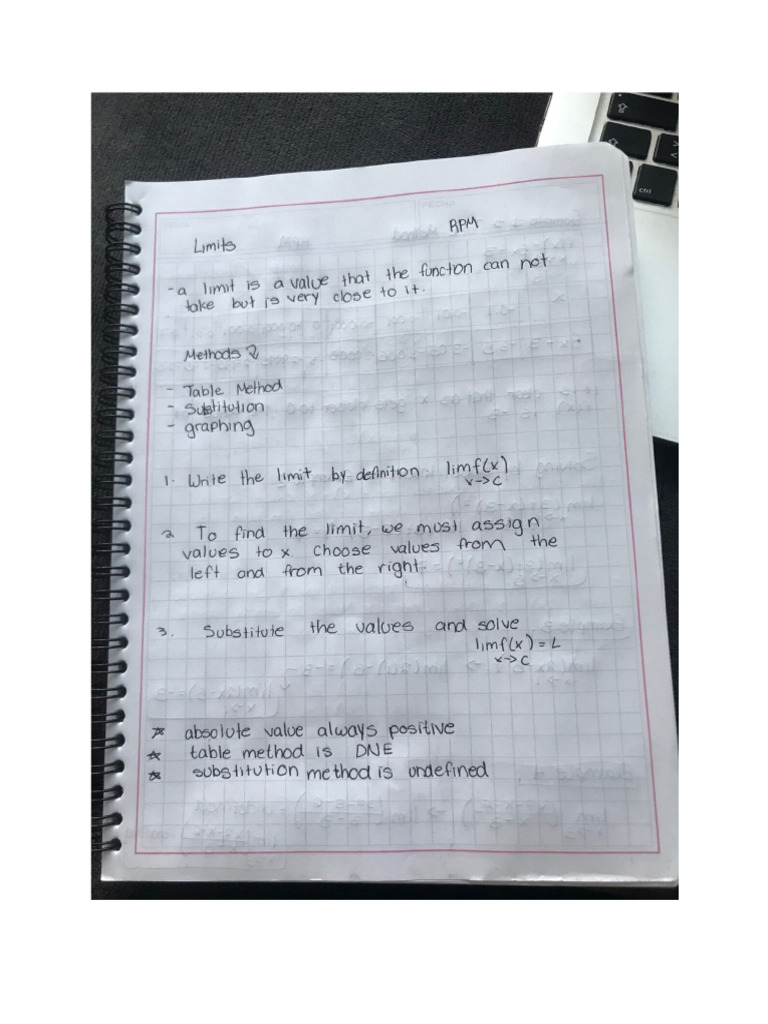 Limits
RPM
- a limit is a value that the functon can not
take but is very close to it.
Methods
- Table Method
- Substitution
- graphing
1. Write the limit by definition limf(x)
x→c
2 To find the limit, we must assign
values to x. choose values from the
left and from the right.
3. Substitute the values and solve
limf(x) = L
x→c
☆ absolute value always positive
☆ table method is DNE
☆ substitution method is undefined
ctrl